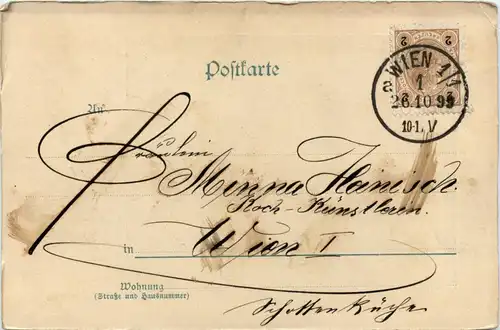 Postkarte
2 2
WIEN 1/1
2
1
26.10 99
10-1. V
An
Fräulein
Minna Hainisch
Koch-Künstlerin.
in Wien I
Wohnung
(Straße und Hausnummer)
Schottenküche